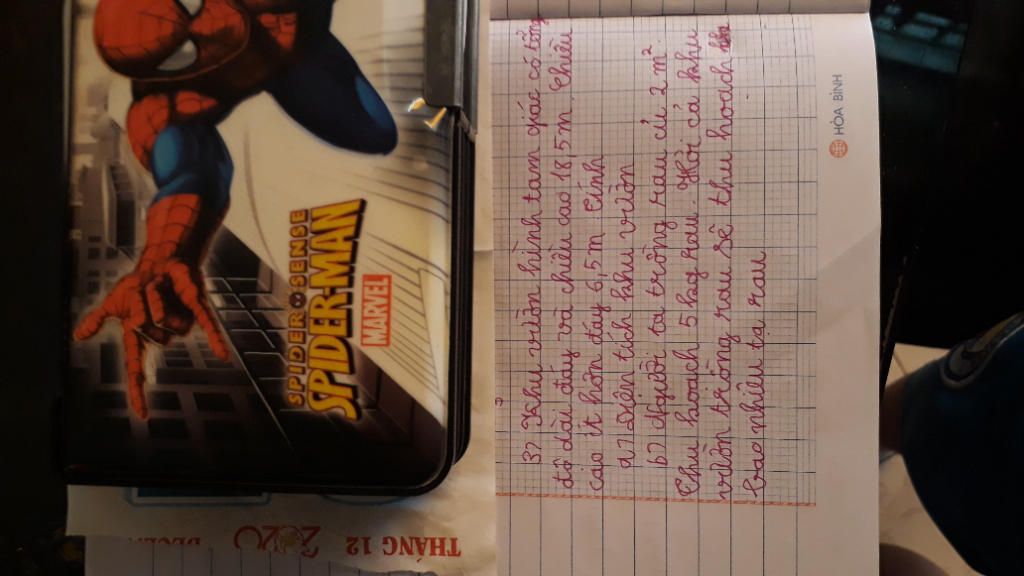 3) Khu vườn hình tam giác có tổng
độ dài đáy và chiều cao 18,5m. Chiều
cao ít hơn đáy 6,5m. Tính
a) Diện tích khu vườn
b) Người ta trồng rau cứ 2 m².
Thu hoạch 5 kg rau. Hỏi cả khu
vườn trồng rau sẽ thu hoạch
bao nhiêu tạ rau
SPIDER SENSE
SPIDER-MAN
MARVEL
HÒA BÌNH
THÁNG 12
2020